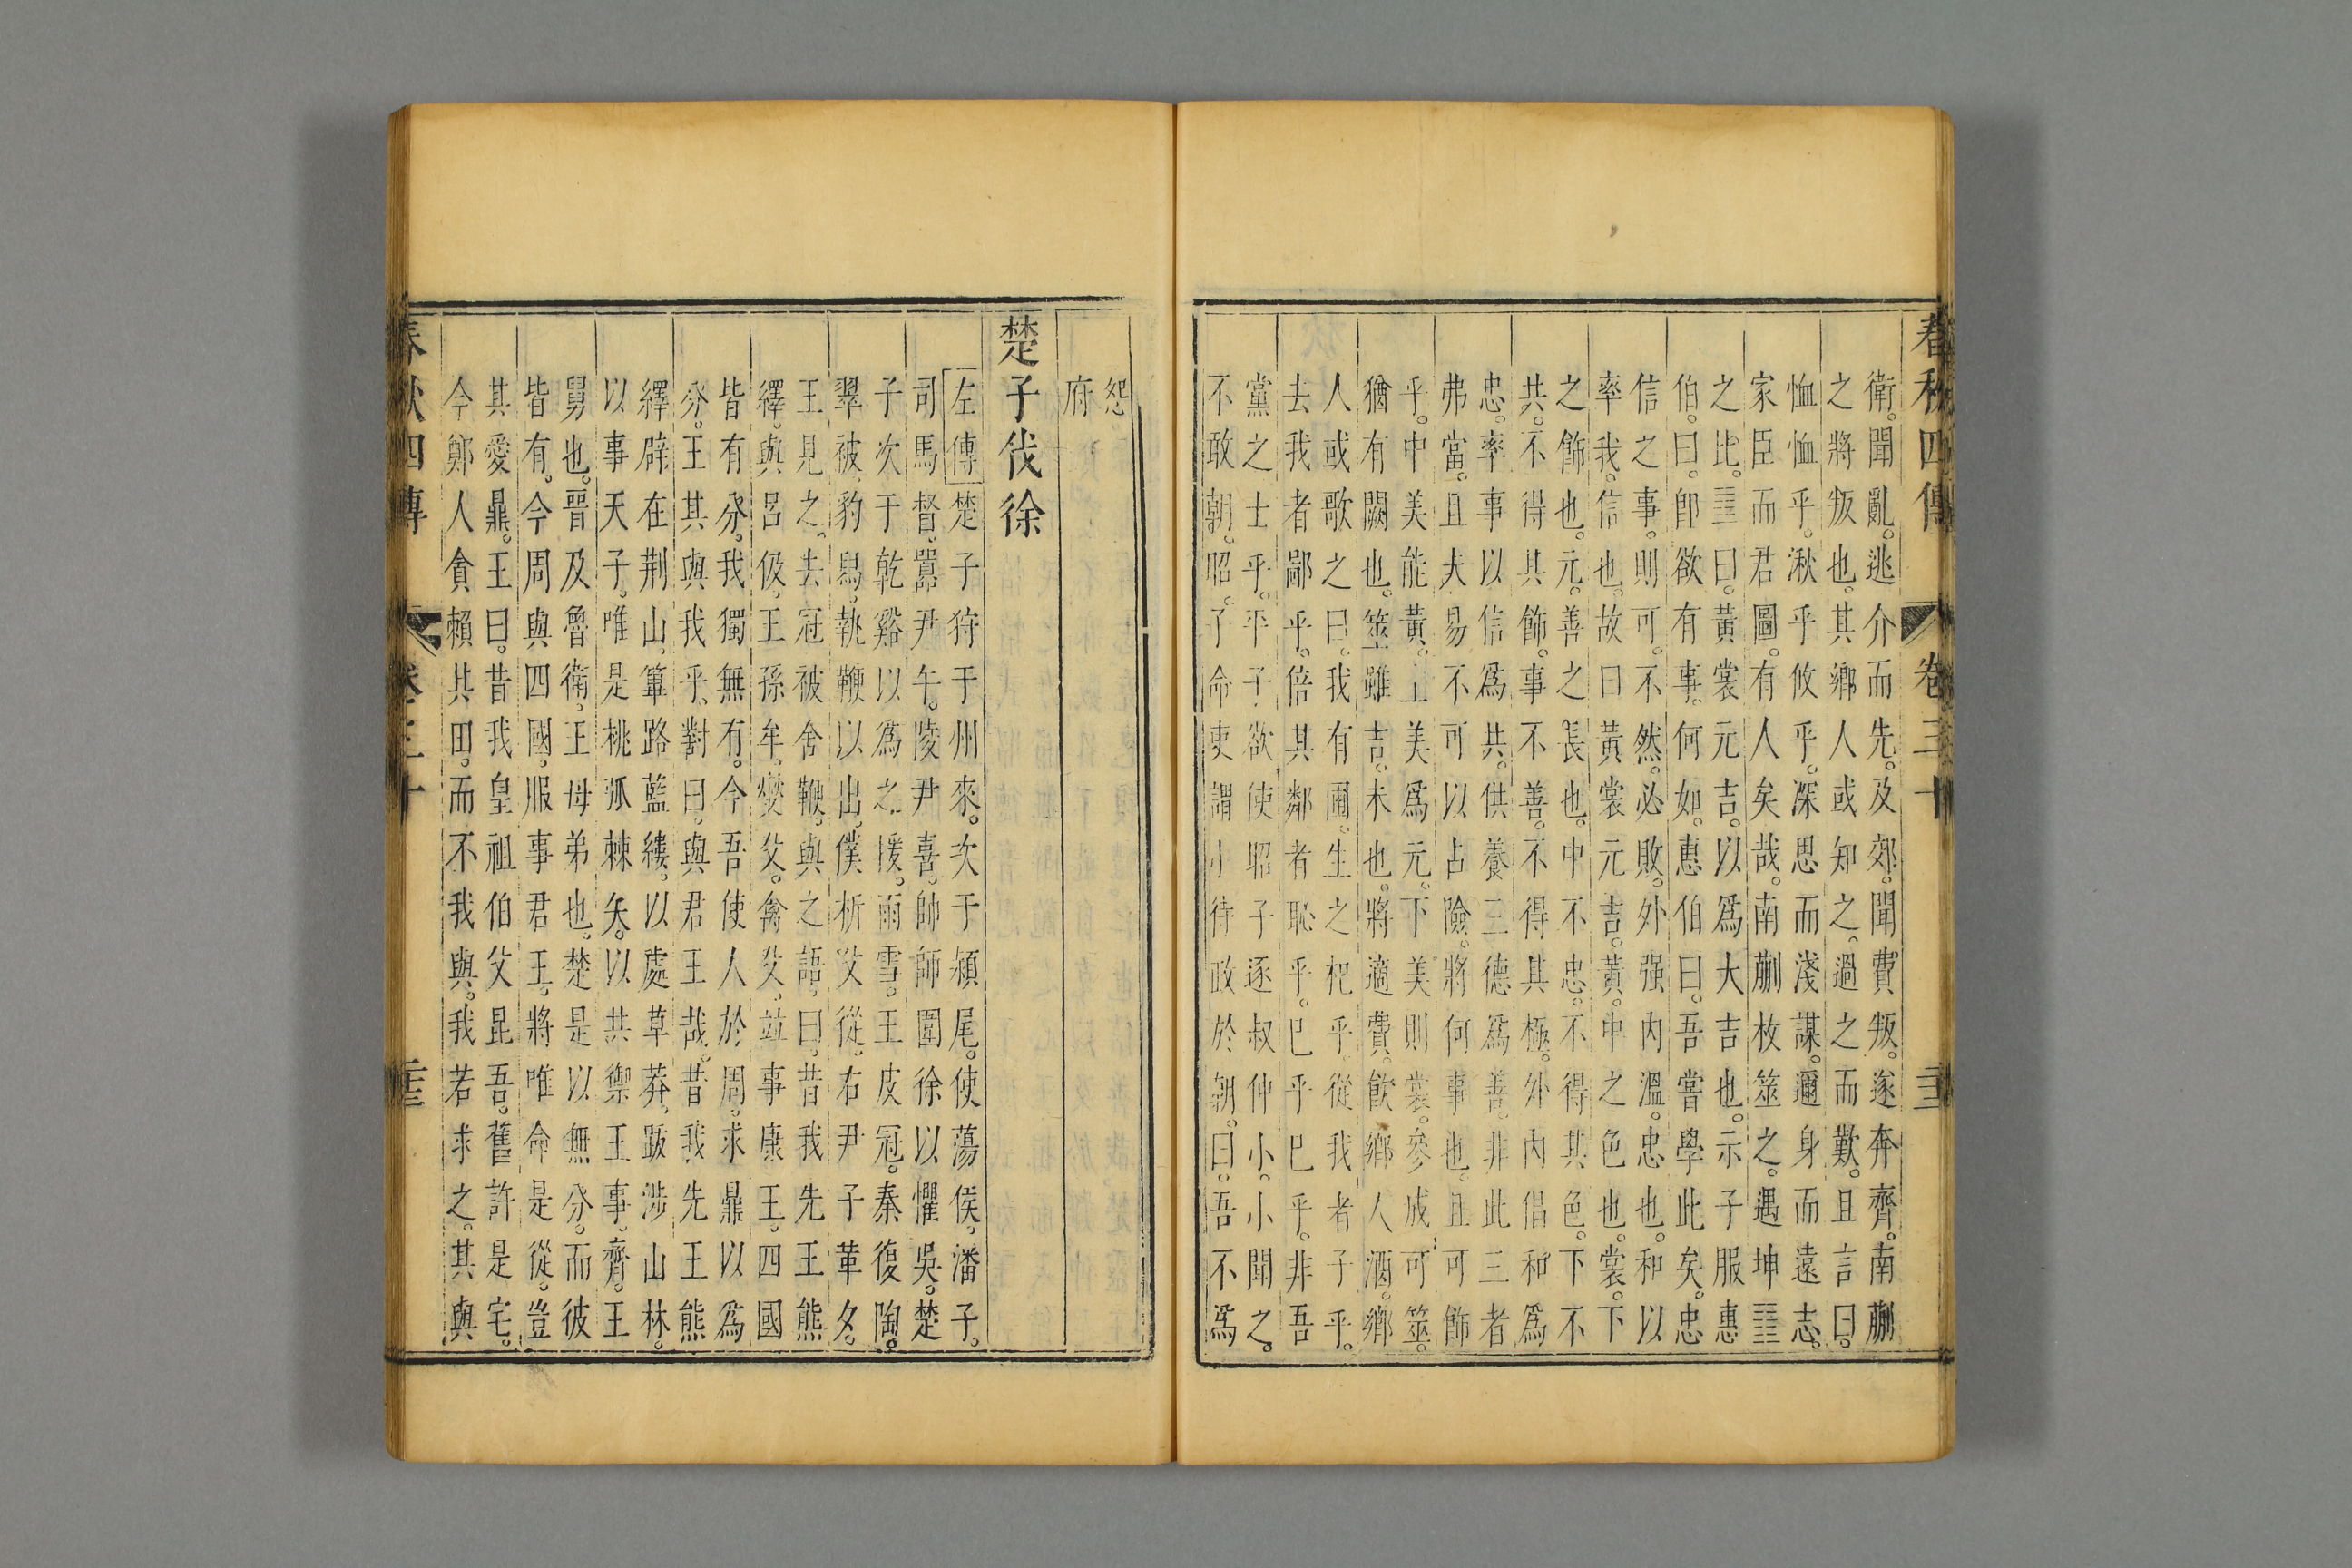 春秋四傳 卷三十
衛。聞亂。逃介而先。及郊。聞費叛。遂奔齊。南蒯
之將叛也。其鄉人或知之。過之而歎。且言曰。
恤恤乎。湫乎攸乎。深思而淺謀。邇身而遠志。
家臣而君圖。有人矣哉。南蒯枚筮之。遇坤䷁
之比。䷇曰。黃裳元吉。以爲大吉也。示子服惠
伯。曰。卽欲有事。何如。惠伯曰。吾嘗學此矣。忠
信之事。則可。不然。必敗。外强内溫。忠也。和以
率我。信也。故曰黃裳元吉。黃。中之色也。裳。下
之飾也。元。善之長也。中不忠。不得其色。下不
共。不得其飾。事不善。不得其極。外内倡和爲
忠。率事以信爲共。供養三德爲善。非此三者
弗當。且夫易不可以占險。將何事也。且可飾
乎。中美能黃。上美爲元。下美則裳。參成可筮。
猶有闕也。筮雖吉。未也。將適費。飲鄉人酒。鄉
人或歌之曰。我有圃。生之杞乎。從我者子乎。
去我者鄙乎。倍其鄰者恥乎。已乎已乎。非吾
黨之士乎。平子欲使昭子逐叔仲小。小聞之。
不敢朝。昭子命吏謂小待政於朝。曰。吾不爲
怨
府
楚子伐徐
左傳楚子狩于州來。次于潁尾。使蕩侯。潘子。
司馬督。囂尹午。陵尹喜。帥師圍徐以懼吳。楚
子次于乾谿。以爲之援。雨雪。王皮冠。秦復陶。
翠被。豹舄。執鞭以出。僕析父從。右尹子革夕。
王見之。去冠被舍鞭。與之語。曰。昔我先王熊
繹。與呂伋。王孫牟。燮父。禽父。竝事康王。四國
皆有分。我獨無有。今吾使人於周。求鼎以爲
分。王其與我乎。對曰。與君王哉。昔我先王熊
繹。辟在荆山。篳路藍縷。以處草莽。跋涉山林。
以事天子。唯是桃弧棘矢。以共禦王事。齊。王
舅也。晉及魯衛。王母弟也。楚是以無分。而彼
皆有。今周與四國。服事君王。將唯命是從。豈
其愛鼎。王曰。昔我皇祖伯父昆吾。舊許是宅。
今鄭人貪賴其田。而不我與。我若求之。其與
春秋四傳 卷三十